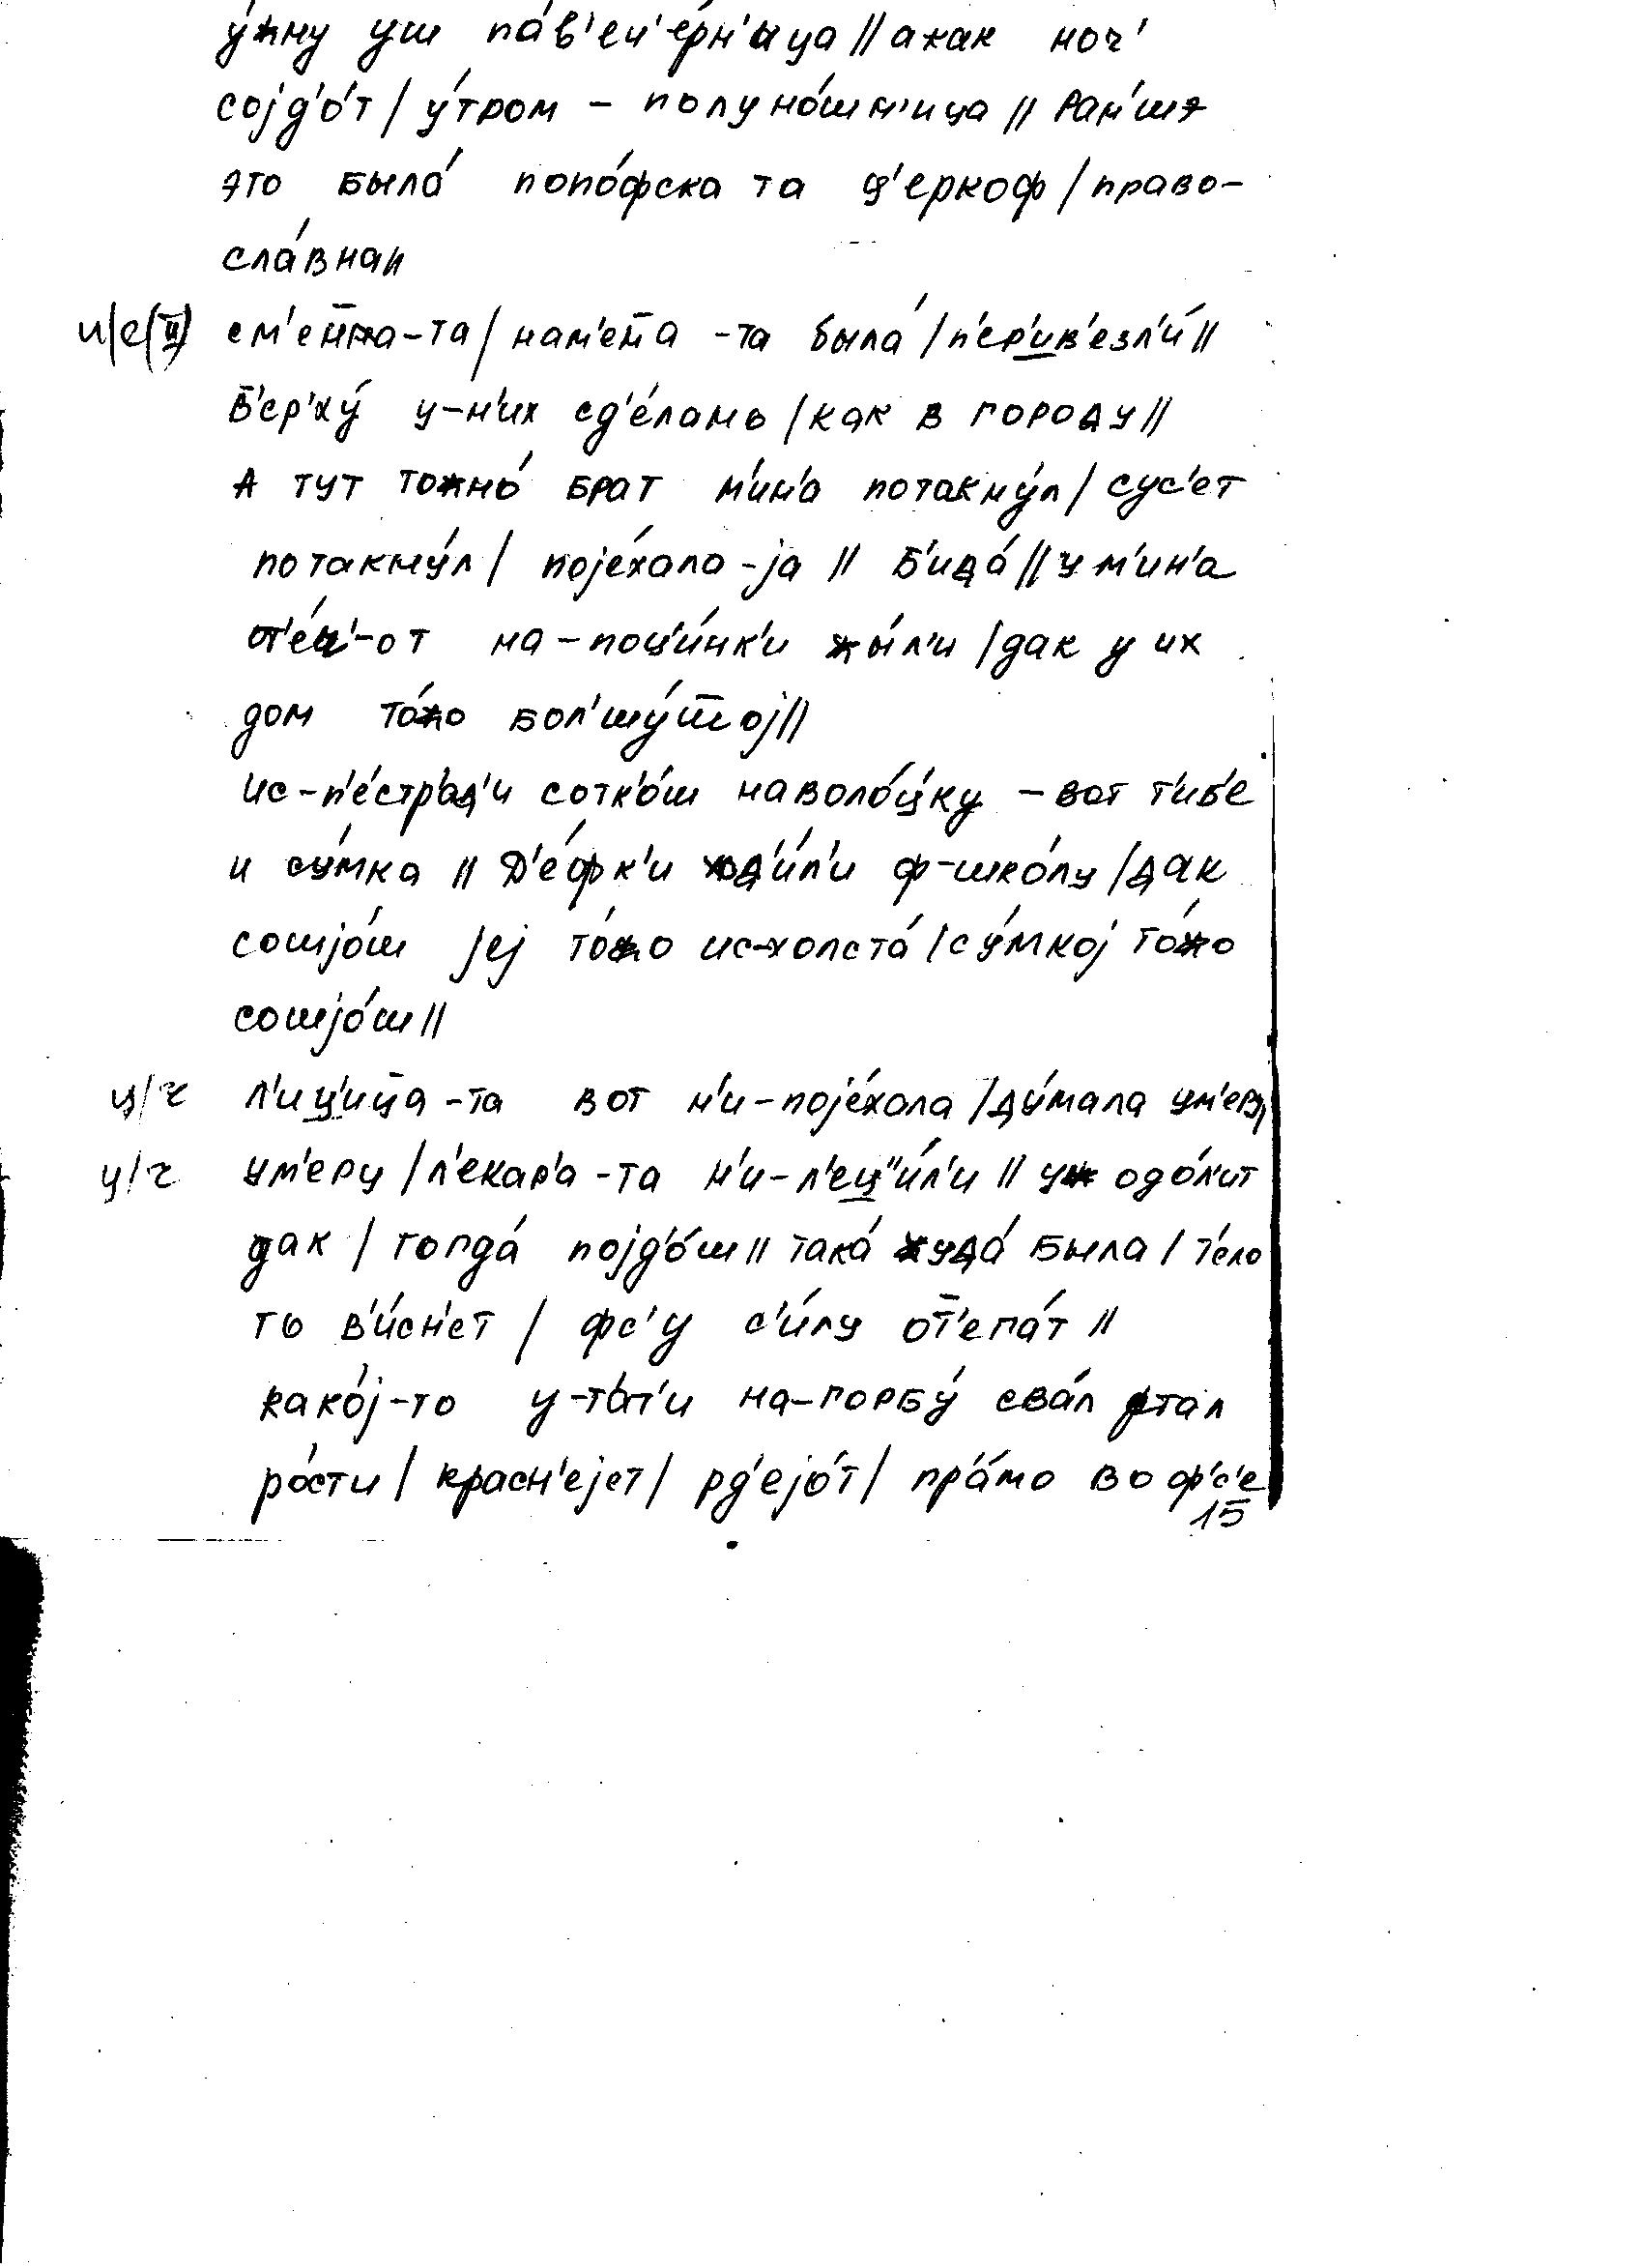 у́жну уш па́в'еч'е́рн'ица // а как ноч'
сојд'о́т / у́тром – полуно́шн'ица // Ран'шэ
это была́ попо́фска та ц'еркоф / право-
сла́внаи
и/е(II) -та / -та была́ / п'ер'ив'езл'и́ //
В'ер'ху́ у-н'их сд'е́лано / как в городу //
А тут тожно́ брат м'ин'а потакну́л / сус'ет
потакну́л / поје́хала-ја // Б'ида́ // у м'ин'а
от'е́ц'-от на-поц'и́нк'и жы́л'и / дак у их
дом то́жо бол'шу́шој //
ис-п'е́стр'ад'и сотк'о́ш наволо́ц'ку – вот т'иб'е
и су́мка // Д'е́фк'и ход'и́л'и ф-шко́лу / дак
сошјо́ш јеј то́жо ис-холста́ / су́мкој то́жо
сошјо́ш //
ц/ч л'иц'ица-та вот н'и-поје́хала / ду́мала ум'еру
ц/ч ум'еру / л'екар'а-та н'и-л'ец''и́л'и // уж одо́л'ит
дак / тогда́ појд'о́ш // така́ худа́ была / т'е́ло
то в'и́сн'ет / фс'у с'и́лу от'епа́т //
како́ј-то у-т'а́т'и на-горбу́ сва́л стал
ро́сти / красн'ејет / рд'ејо́т / пр'а́мо во ф'с'е
15